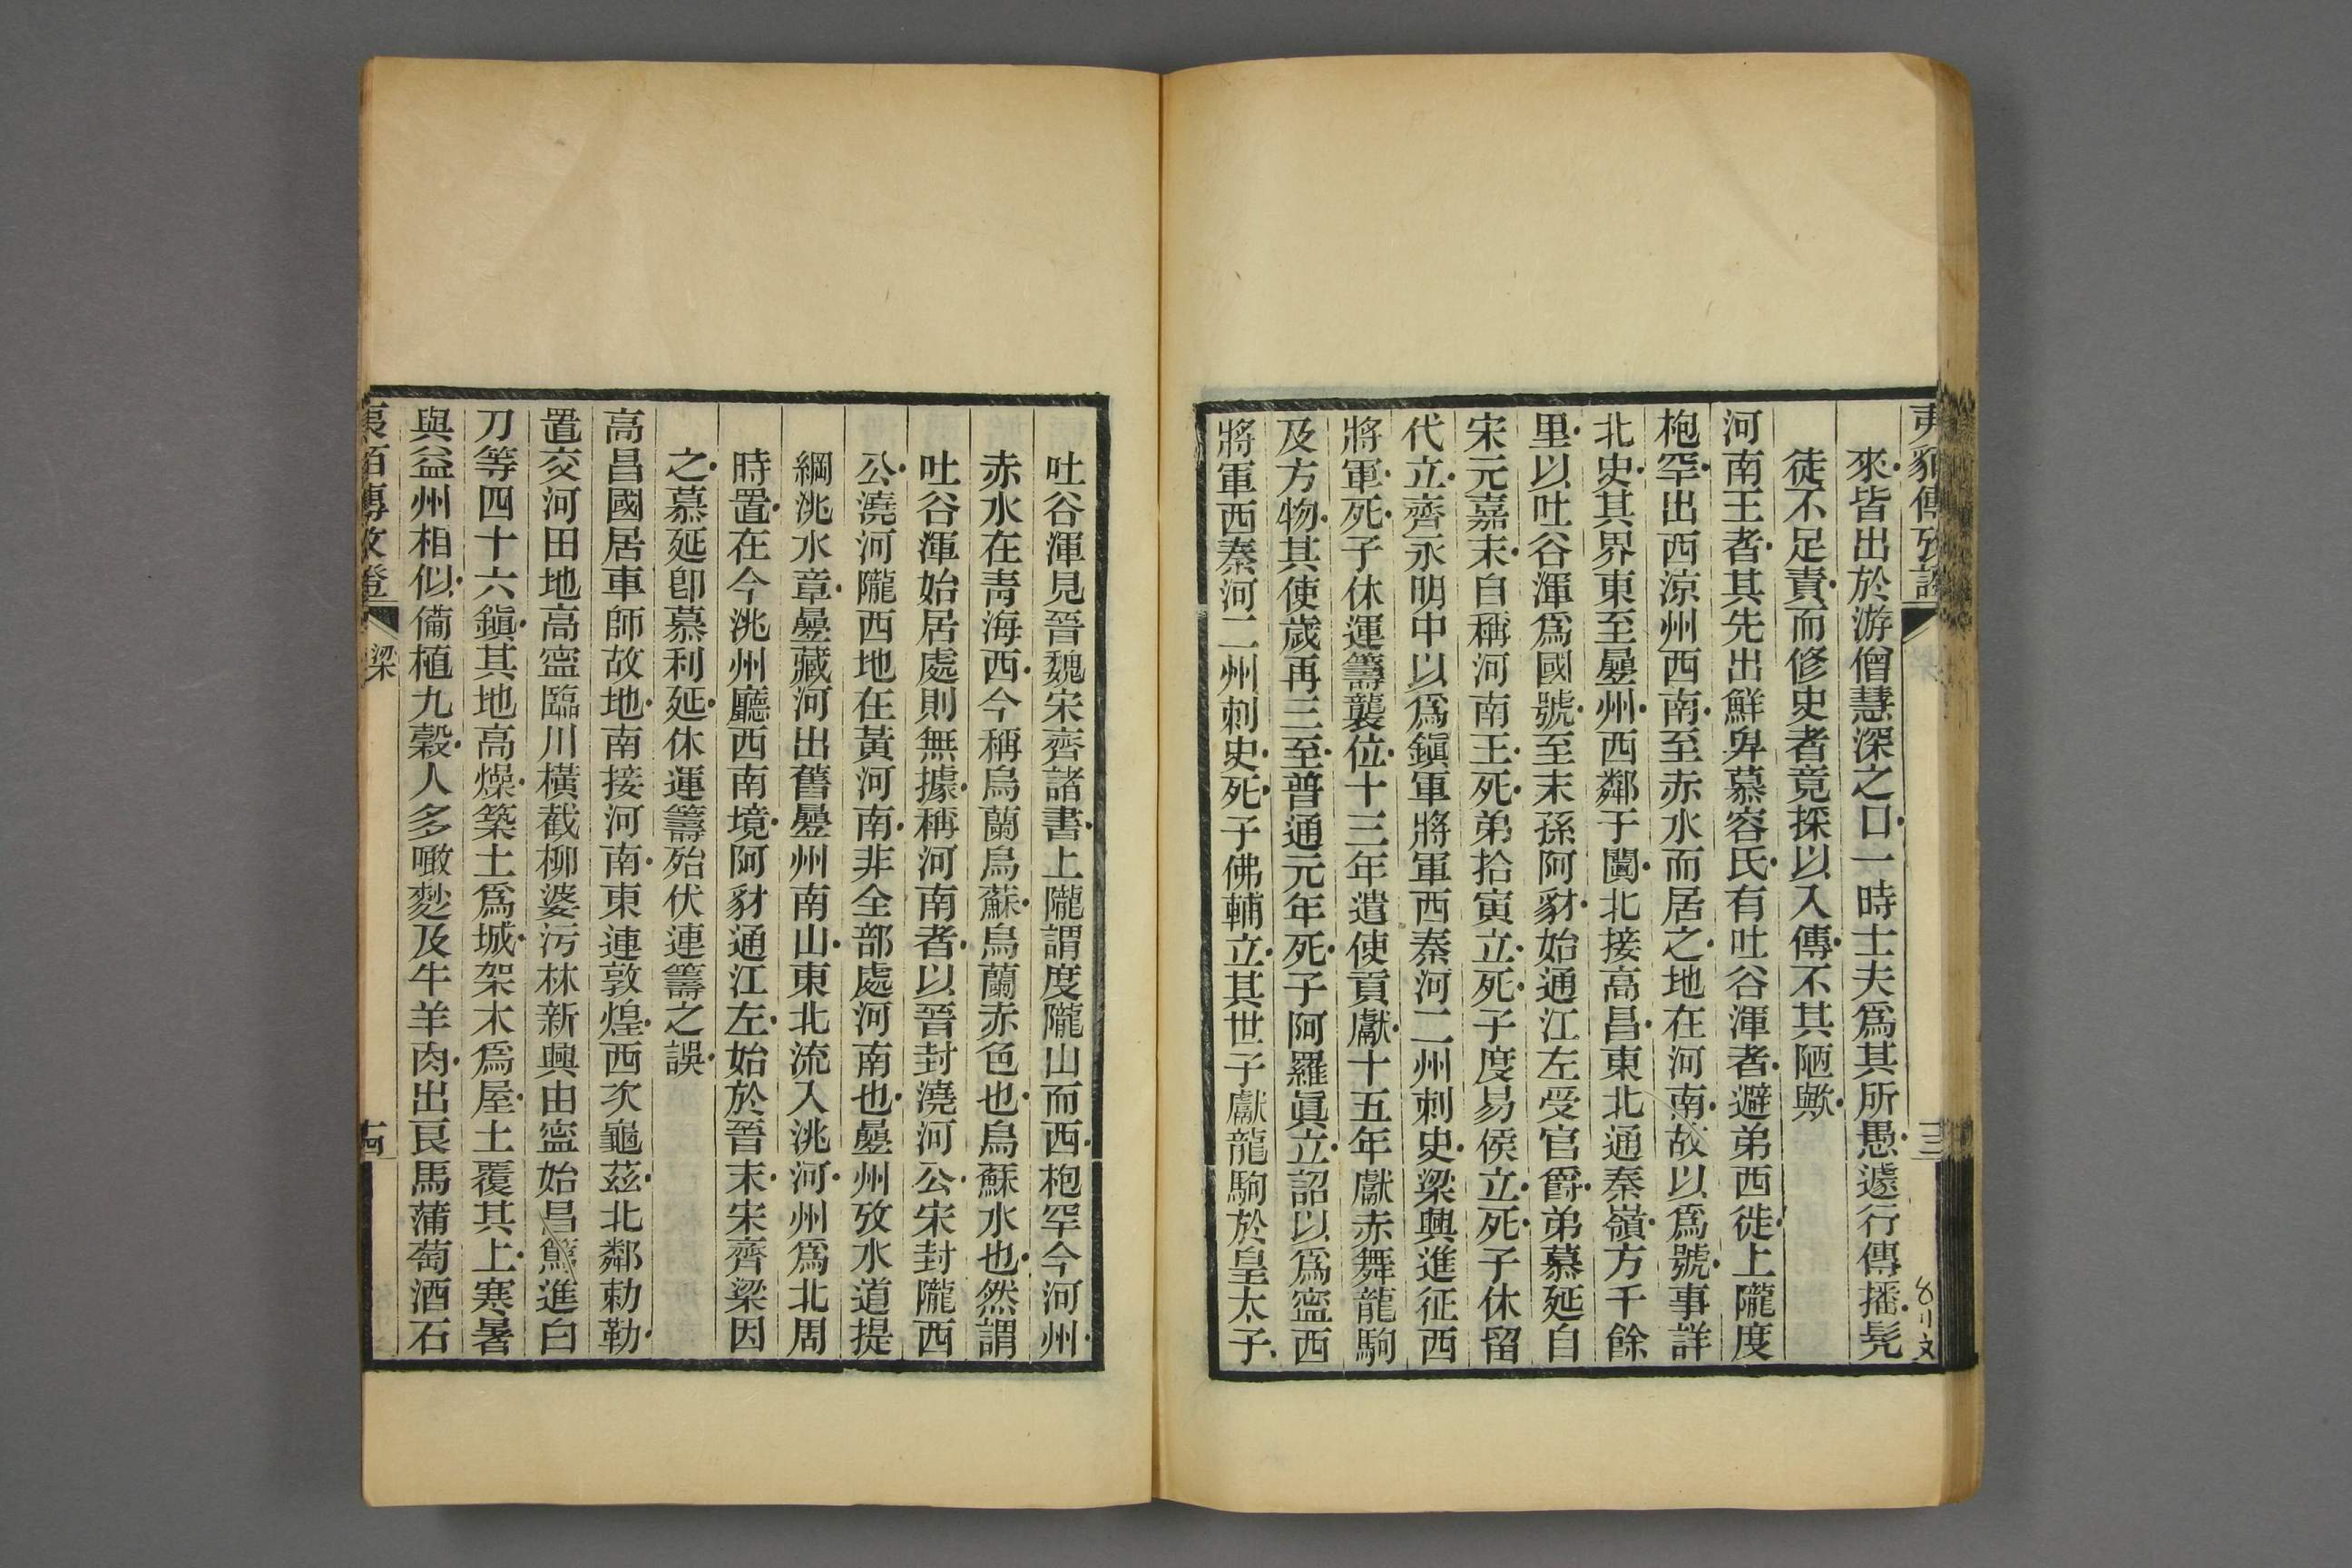 來皆出於游僧慧深之口一時士夫爲其所愚遽行傳播髡
徒不足責而修史者竟採以入傳不其陋歟
河南王者其先出鮮卑慕容氏有吐谷渾者避弟西徙上隴度
枹罕出西涼州西南至赤水而居之地在河南故以爲號事詳
北史其界東至疊州西鄰于闐北接高昌東北通秦嶺方千餘
里以吐谷渾爲國號至末孫阿豺始通江左受官爵弟慕延自
宋元嘉末自稱河南王死弟拾寅立死子度易侯立死子休留
代立齊永明中以爲鎭軍將軍西秦河二州刺史梁興進征西
將軍死子休運籌襲位十三年遣使貢獻十五年獻赤舞龍駒
及方物其使歲再三至普通元年死子阿羅眞立詔以爲寍西
將軍西秦河二州刺史死子佛輔立其世子獻龍駒於皇太子
吐谷渾見晉魏宋齊諸書上隴謂度隴山而西枹罕今河州
赤水在靑海西今稱烏蘭烏蘇烏蘭赤色也烏蘇水也然謂
吐谷渾始居處則無據稱河南者以晉封澆河公宋封隴西
公澆河隴西地在黃河南非全部處河南也疊州攷水道提
綱洮水章疊藏河出舊疊州南山東北流入洮河州爲北周
時置在今洮州廳西南境阿豺通江左始於晉末宋齊梁因
之慕延卽慕利延休運籌殆伏連籌之誤
高昌國居車師故地南接河南東連敦煌西次龜茲北鄰勅勒
置交河田地高寍臨川橫截柳婆污林新興由寍始昌篤進白
刀等四十六鎭其地高燥築土爲城架木爲屋土覆其上寒暑
與益州相似備植九穀人多噉麨及牛羊肉出良馬蒲萄酒石
夷貊傳攷證
梁